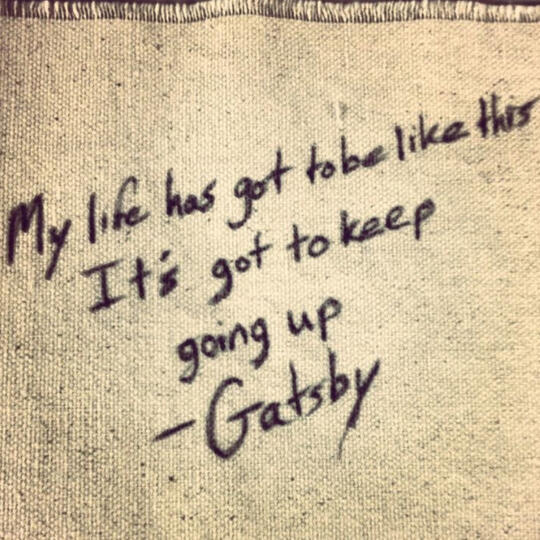 My life has got to be like this
It's got to keep
going up
- Gatsby